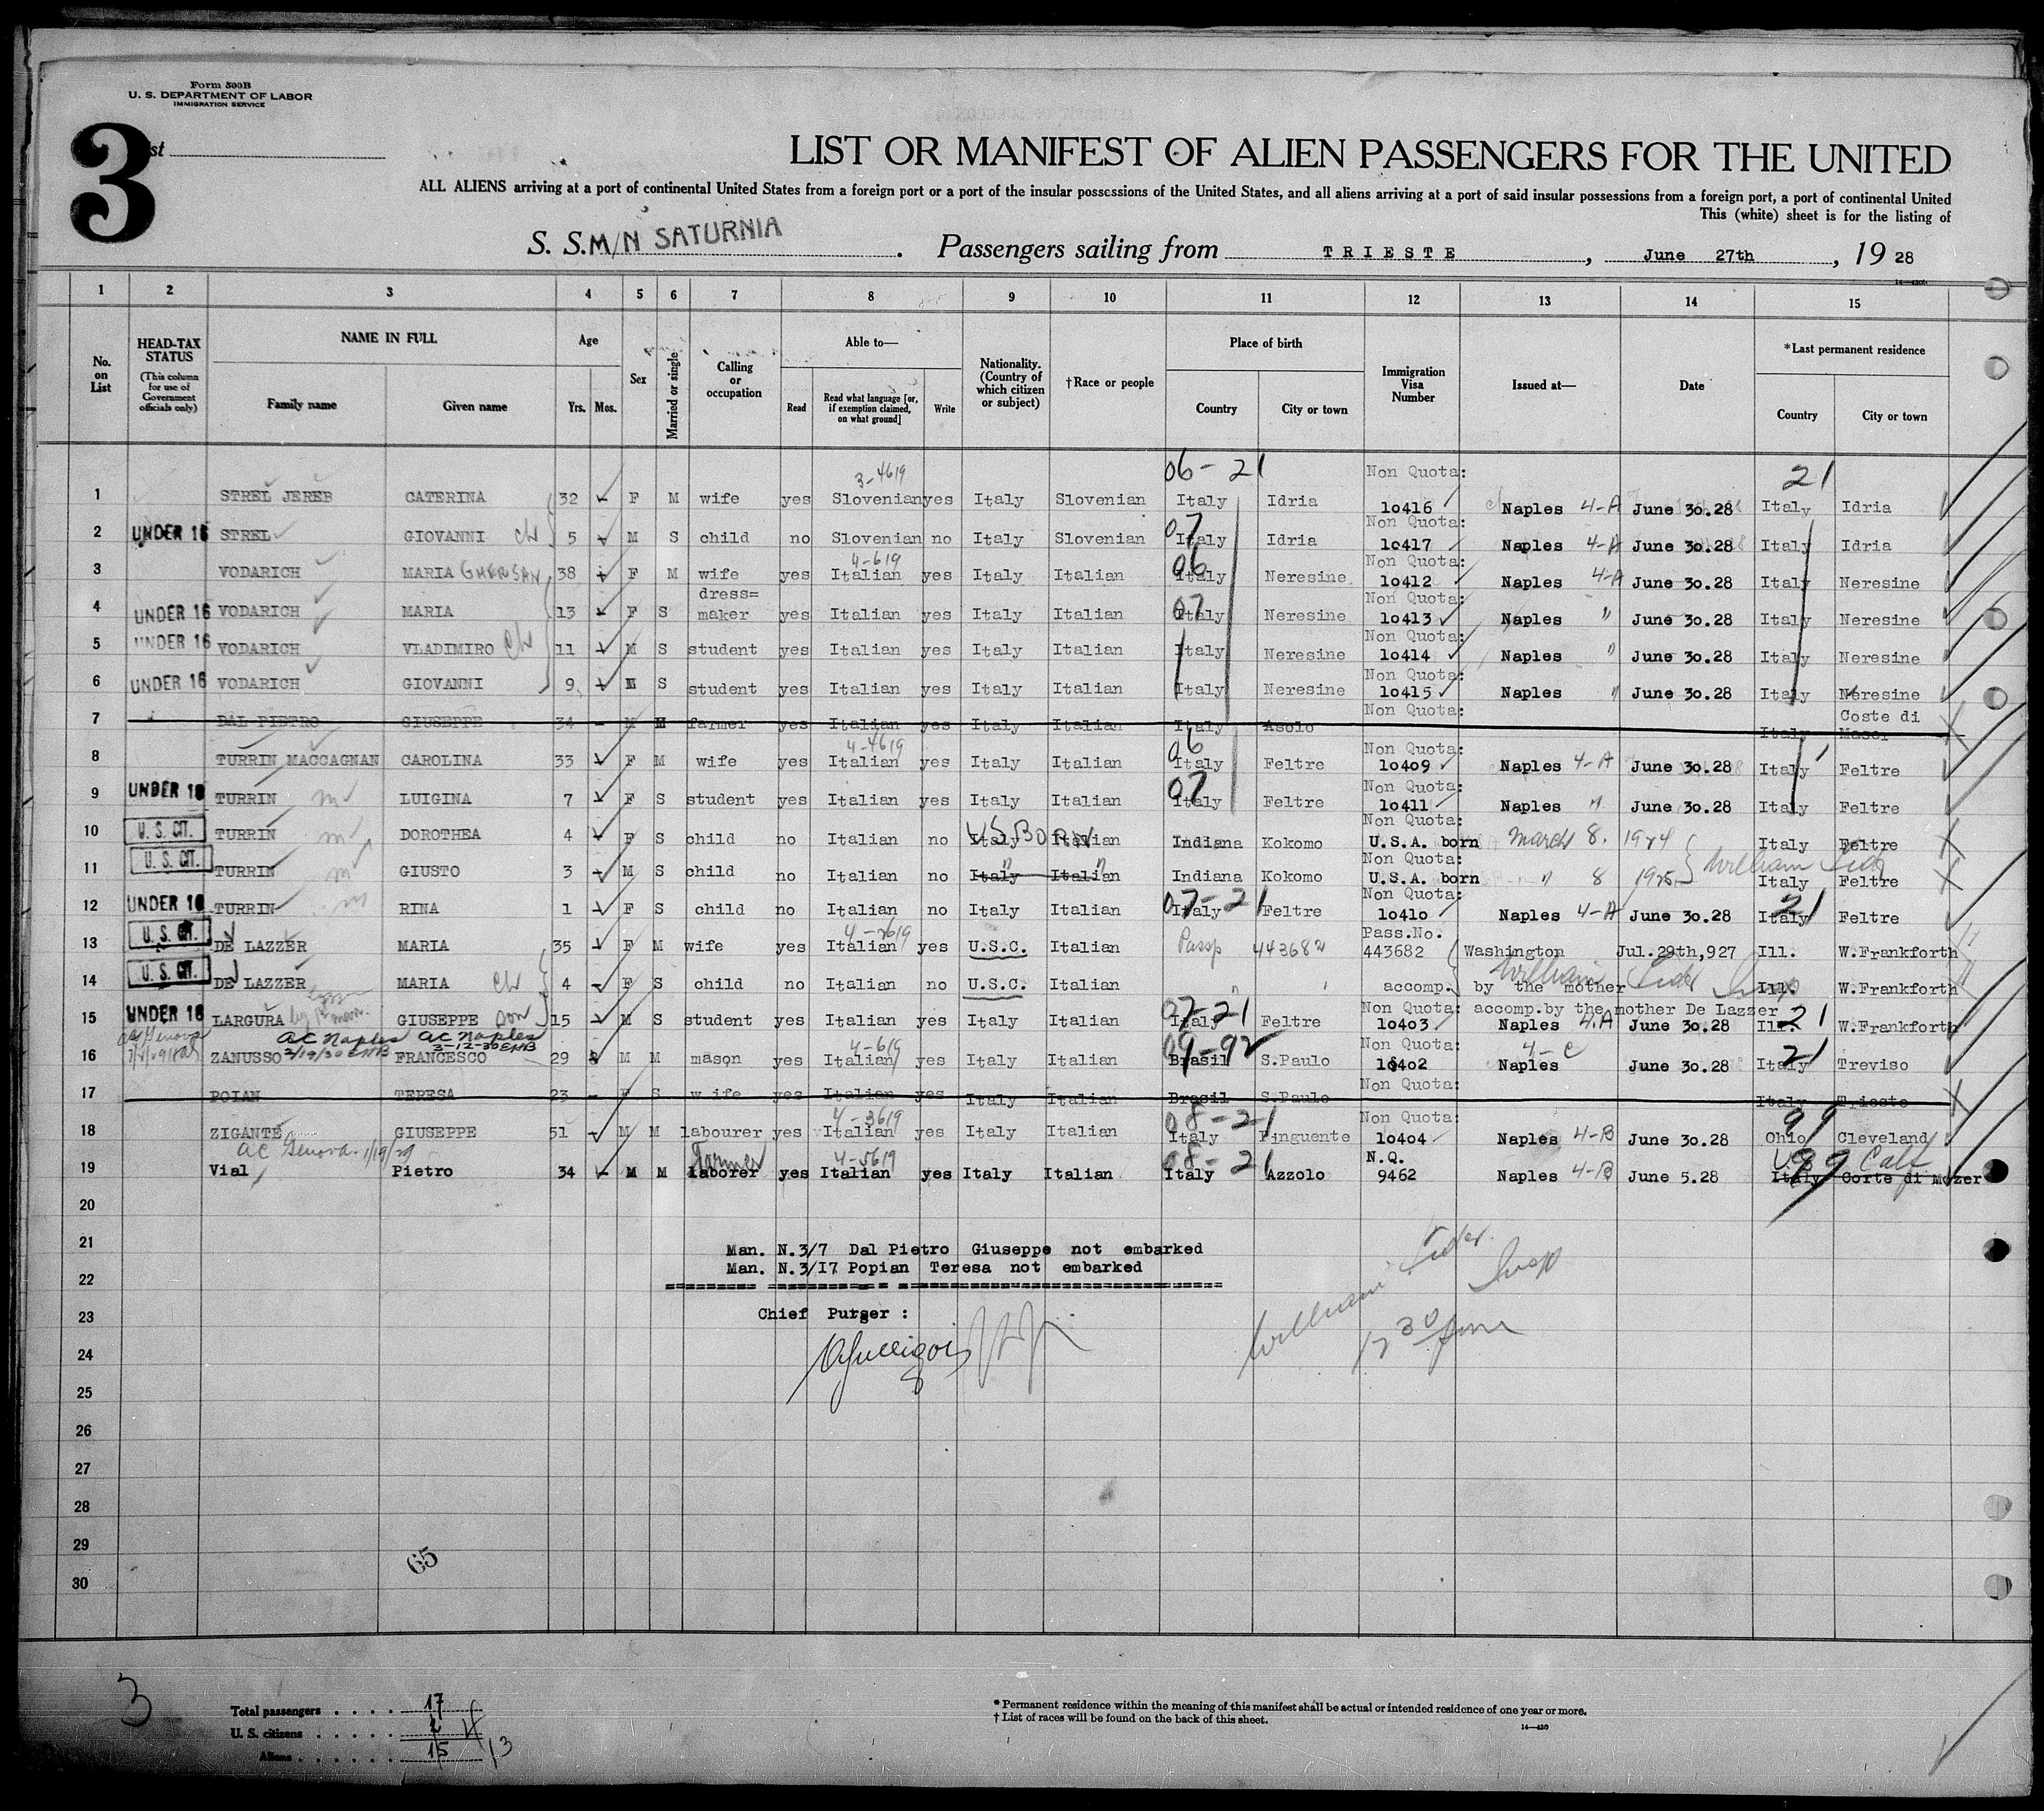 Form 500B
U. S. DEPARTMENT OF LABOR
IMMIGRATION SERVICE
3
LIST OR MANIFEST OF ALIEN PASSENGERS FOR THE UNITED
ALL ALIENS arriving at a port of continental United States from a foreign port or a port of the insular possessions of the United States, and all aliens arriving at a port of said insular possessions from a foreign port, a port of continental United
This (white) sheet is for the listing of
S. S. M/N SATURNIA. Passengers sailing from TRIESTE, June 27th, 19 28
1 2 3 4 5 6 7 8 9 10 11 12 13 14 15
No. on List
HEAD-TAX STATUS (This column for use of Government officials only)
NAME IN FULL
Family name Given name
Age
Yrs. Mos.
Sex
Married or single
Calling or occupation
Able to—
Read
Read what language [or, if exemption claimed, on what ground]
Write
Nationality. (Country of which citizen or subject)
†Race or people
Place of birth
Country City or town
Immigration Visa Number
Issued at—
Date
*Last permanent residence
Country City or town
3-4619 06-21 Non Quota: 21
1 STREL JEREB CATERINA 32 - F M wife yes Slovenian yes Italy Slovenian Italy Idria 10416 Naples 4-A June 30.28 Italy Idria
07 Non Quota:
2 UNDER 16 STREL GIOVANNI ch 5 - M S child no Slovenian no Italy Slovenian Italy Idria 10417 Naples 4-A June 30.28 Italy Idria
4-619 06 Non Quota:
3 VODARICH MARIA 38 - F M wife yes Italian yes Italy Italian Italy Neresine 10412 Naples 4-A June 30.28 Italy Neresine
dress= 07 Non Quota:
4 UNDER 16 VODARICH MARIA 13 - F S maker yes Italian yes Italy Italian Italy Neresine 10413 Naples " June 30.28 Italy Neresine
Non Quota:
5 UNDER 16 VODARICH VLADIMIRO ch 11 - M S student yes Italian yes Italy Italian Italy Neresine 10414 Naples " June 30.28 Italy Neresine
Non Quota:
6 UNDER 16 VODARICH GIOVANNI 9 - M S student yes Italian yes Italy Italian Italy Neresine 10415 Naples " June 30.28 Italy Neresine
Non Quota: Coste di
7 DAL PIETRO GIUSEPPE 34 - M M farmer yes Italian yes Italy Italian Italy Asolo Italy Maser
4-4619 06 Non Quota:
8 TURRIN MACCAGNAN CAROLINA 33 - F M wife yes Italian yes Italy Italian Italy Feltre 10409 Naples 4-A June 30.28 Italy Feltre
07 Non Quota:
9 UNDER 16 TURRIN m LUIGINA 7 - F S student yes Italian yes Italy Italian Italy Feltre 10411 Naples " June 30.28 Italy Feltre
US BORN Non Quota:
10 U. S. CIT. TURRIN m DOROTHEA 4 - F S child no Italian no Italy Italian Indiana Kokomo U.S.A. born March 8. 1924 Italy Feltre
Non Quota:
11 U. S. CIT. TURRIN m GIUSTO 3 - M S child no Italian no Italy Italian Indiana Kokomo U.S.A. born " 8 1925 Italy Feltre
07-21 Non Quota: 21
12 UNDER 16 TURRIN m RINA 1 - F S child no Italian no Italy Italian Italy Feltre 10410 Naples 4-A June 30.28 Italy Feltre
Pass.No.
13 U. S. CIT. DE LAZZER MARIA 35 - F M wife yes Italian yes U.S.C. Italian Passp 443682 443682 Washington Jul.29th,927 Ill. W.Frankforth
14 U. S. CIT. DE LAZZER MARIA ch 4 - F S child no Italian no U.S.C. Italian accomp. by the mother Ill. W.Frankforth
07-21 Non Quota: accomp.by the mother De Lazzer 21
15 UNDER 16 LARGURA GIUSEPPE son 15 - M S student yes Italian yes Italy Italian Italy Feltre 10403 Naples 4.A June 30.28 Ill. W.Frankforth
AC Naples 2/19/30 EHB AC Naples 3-12-30 EHB 4-619 09-92 Non Quota: 4-C 21
16 ZANUSSO FRANCESCO 29 M M mason yes Italian yes Italy Italian Brasil S.Paulo 10402 Naples June 30.28 Italy Treviso
Non Quota:
17 POIAN TERESA 23 - F S wife yes Italian yes Italy Italian Brasil S.Paulo Italy Trieste
4-3619 08-21 Non Quota: 99
18 ZIGANTE GIUSEPPE 51 - M M labourer yes Italian yes Italy Italian Italy Pinguente 10404 Naples 4-B June 30.28 Ohio Cleveland
AC Genova 1/19/29 farmer 4-5619 08-21 N.Q. US 99 Calf
19 Vial Pietro 34 - M M laborer yes Italian yes Italy Italian Italy Azzolo 9462 Naples 4-B June 5.28 Italy Corte di Mozer
20
21 Man. N.3/7 Dal Pietro Giuseppe not embarked
22 Man. N.3/I7 Popian Teresa not embarked
23 Chief Purser :
24
25
26
27
28
29
30
65
3
Total passengers . . . . 17
U. S. citizens . . . . . 2 4
Aliens . . . . . . 15 13
* Permanent residence within the meaning of this manifest shall be actual or intended residence of one year or more.
† List of races will be found on the back of this sheet.
14—430